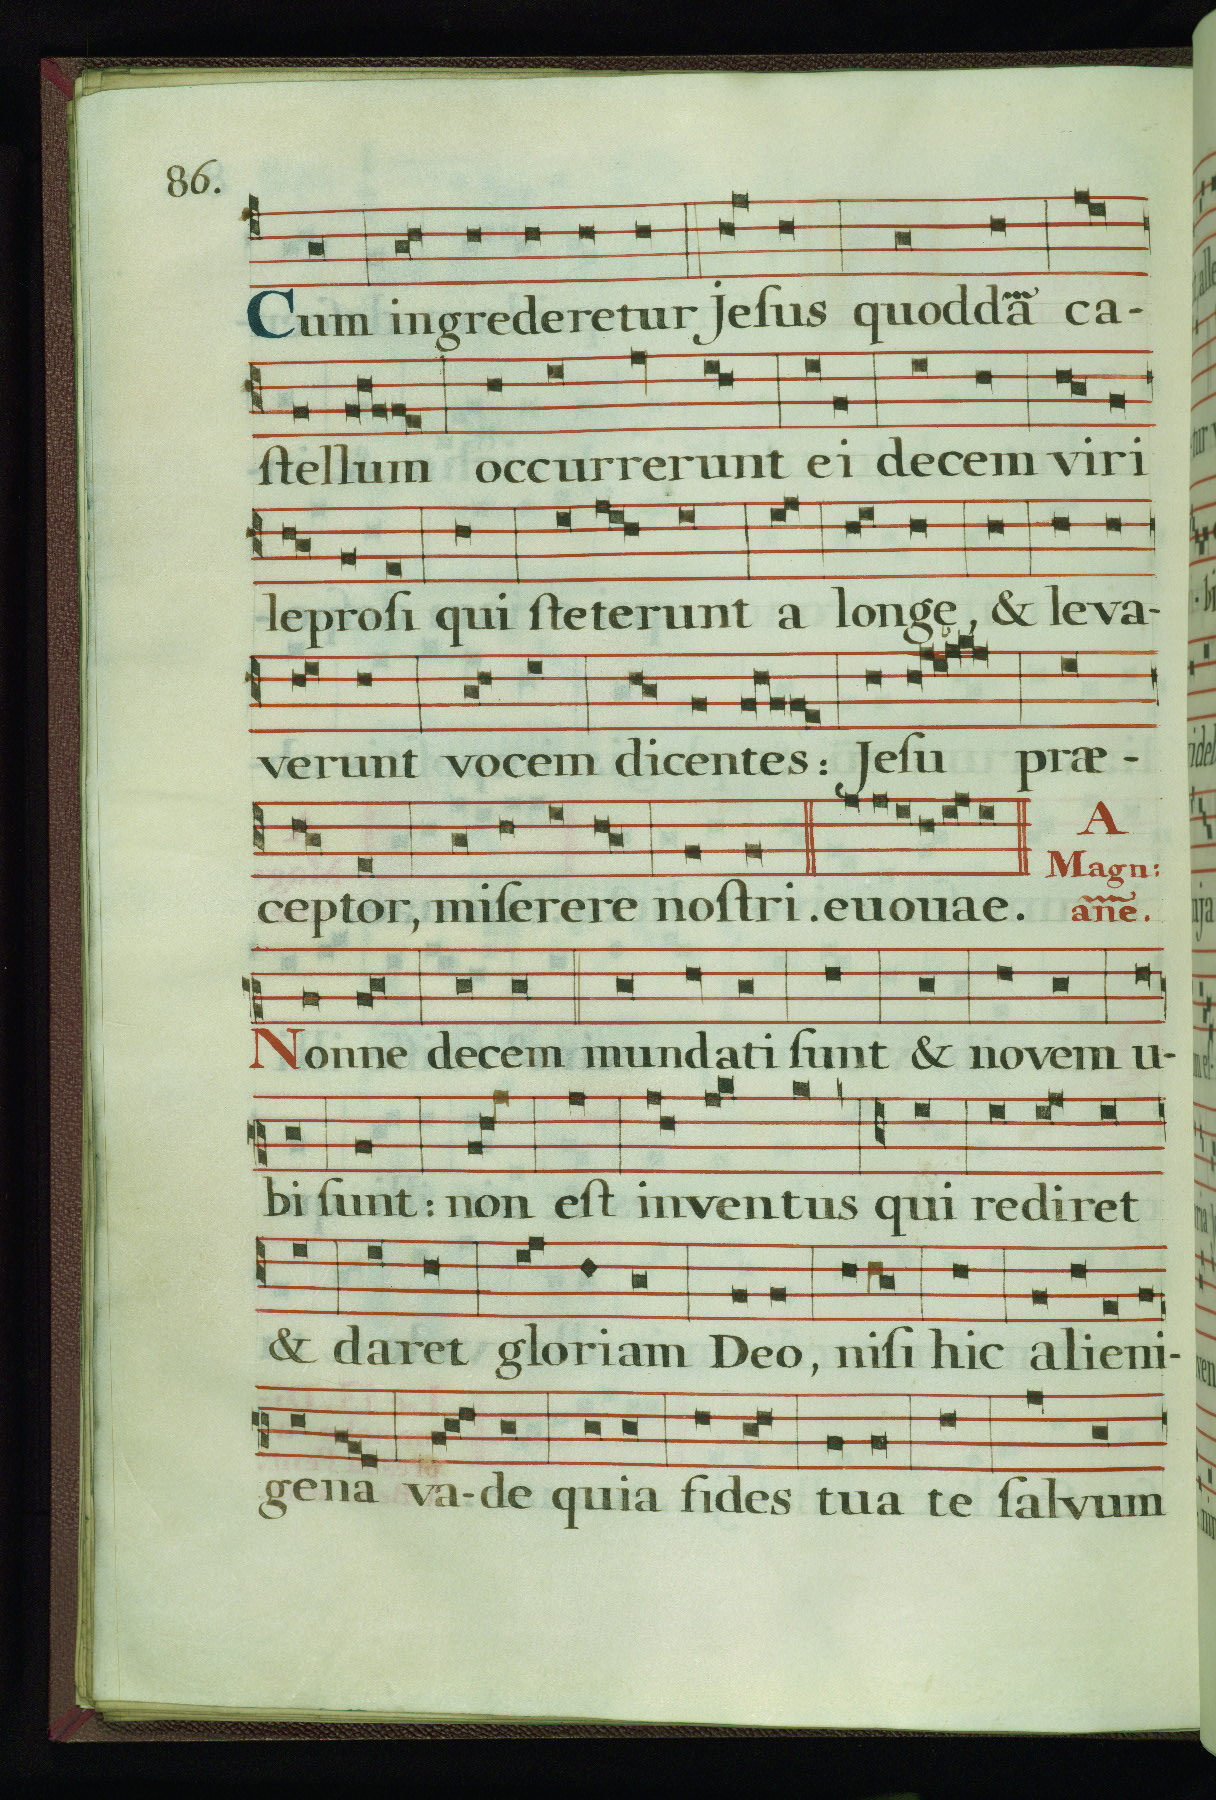 86.
Cum ingrederetur jeſus quoddã ca-
ſtellum occurrerunt ei decem viri
leproſi qui ſteterunt a longe, & leva-
verunt vocem dicentes: Jeſu præ-
ceptor, miſerere noſtri. euouae. A
Magn:
añe.
Nonne decem mundati ſunt & novem u-
bi ſunt: non eſt inventus qui rediret
& daret gloriam Deo, niſi hic alieni-
gena va-de quia fides tua te ſalvum